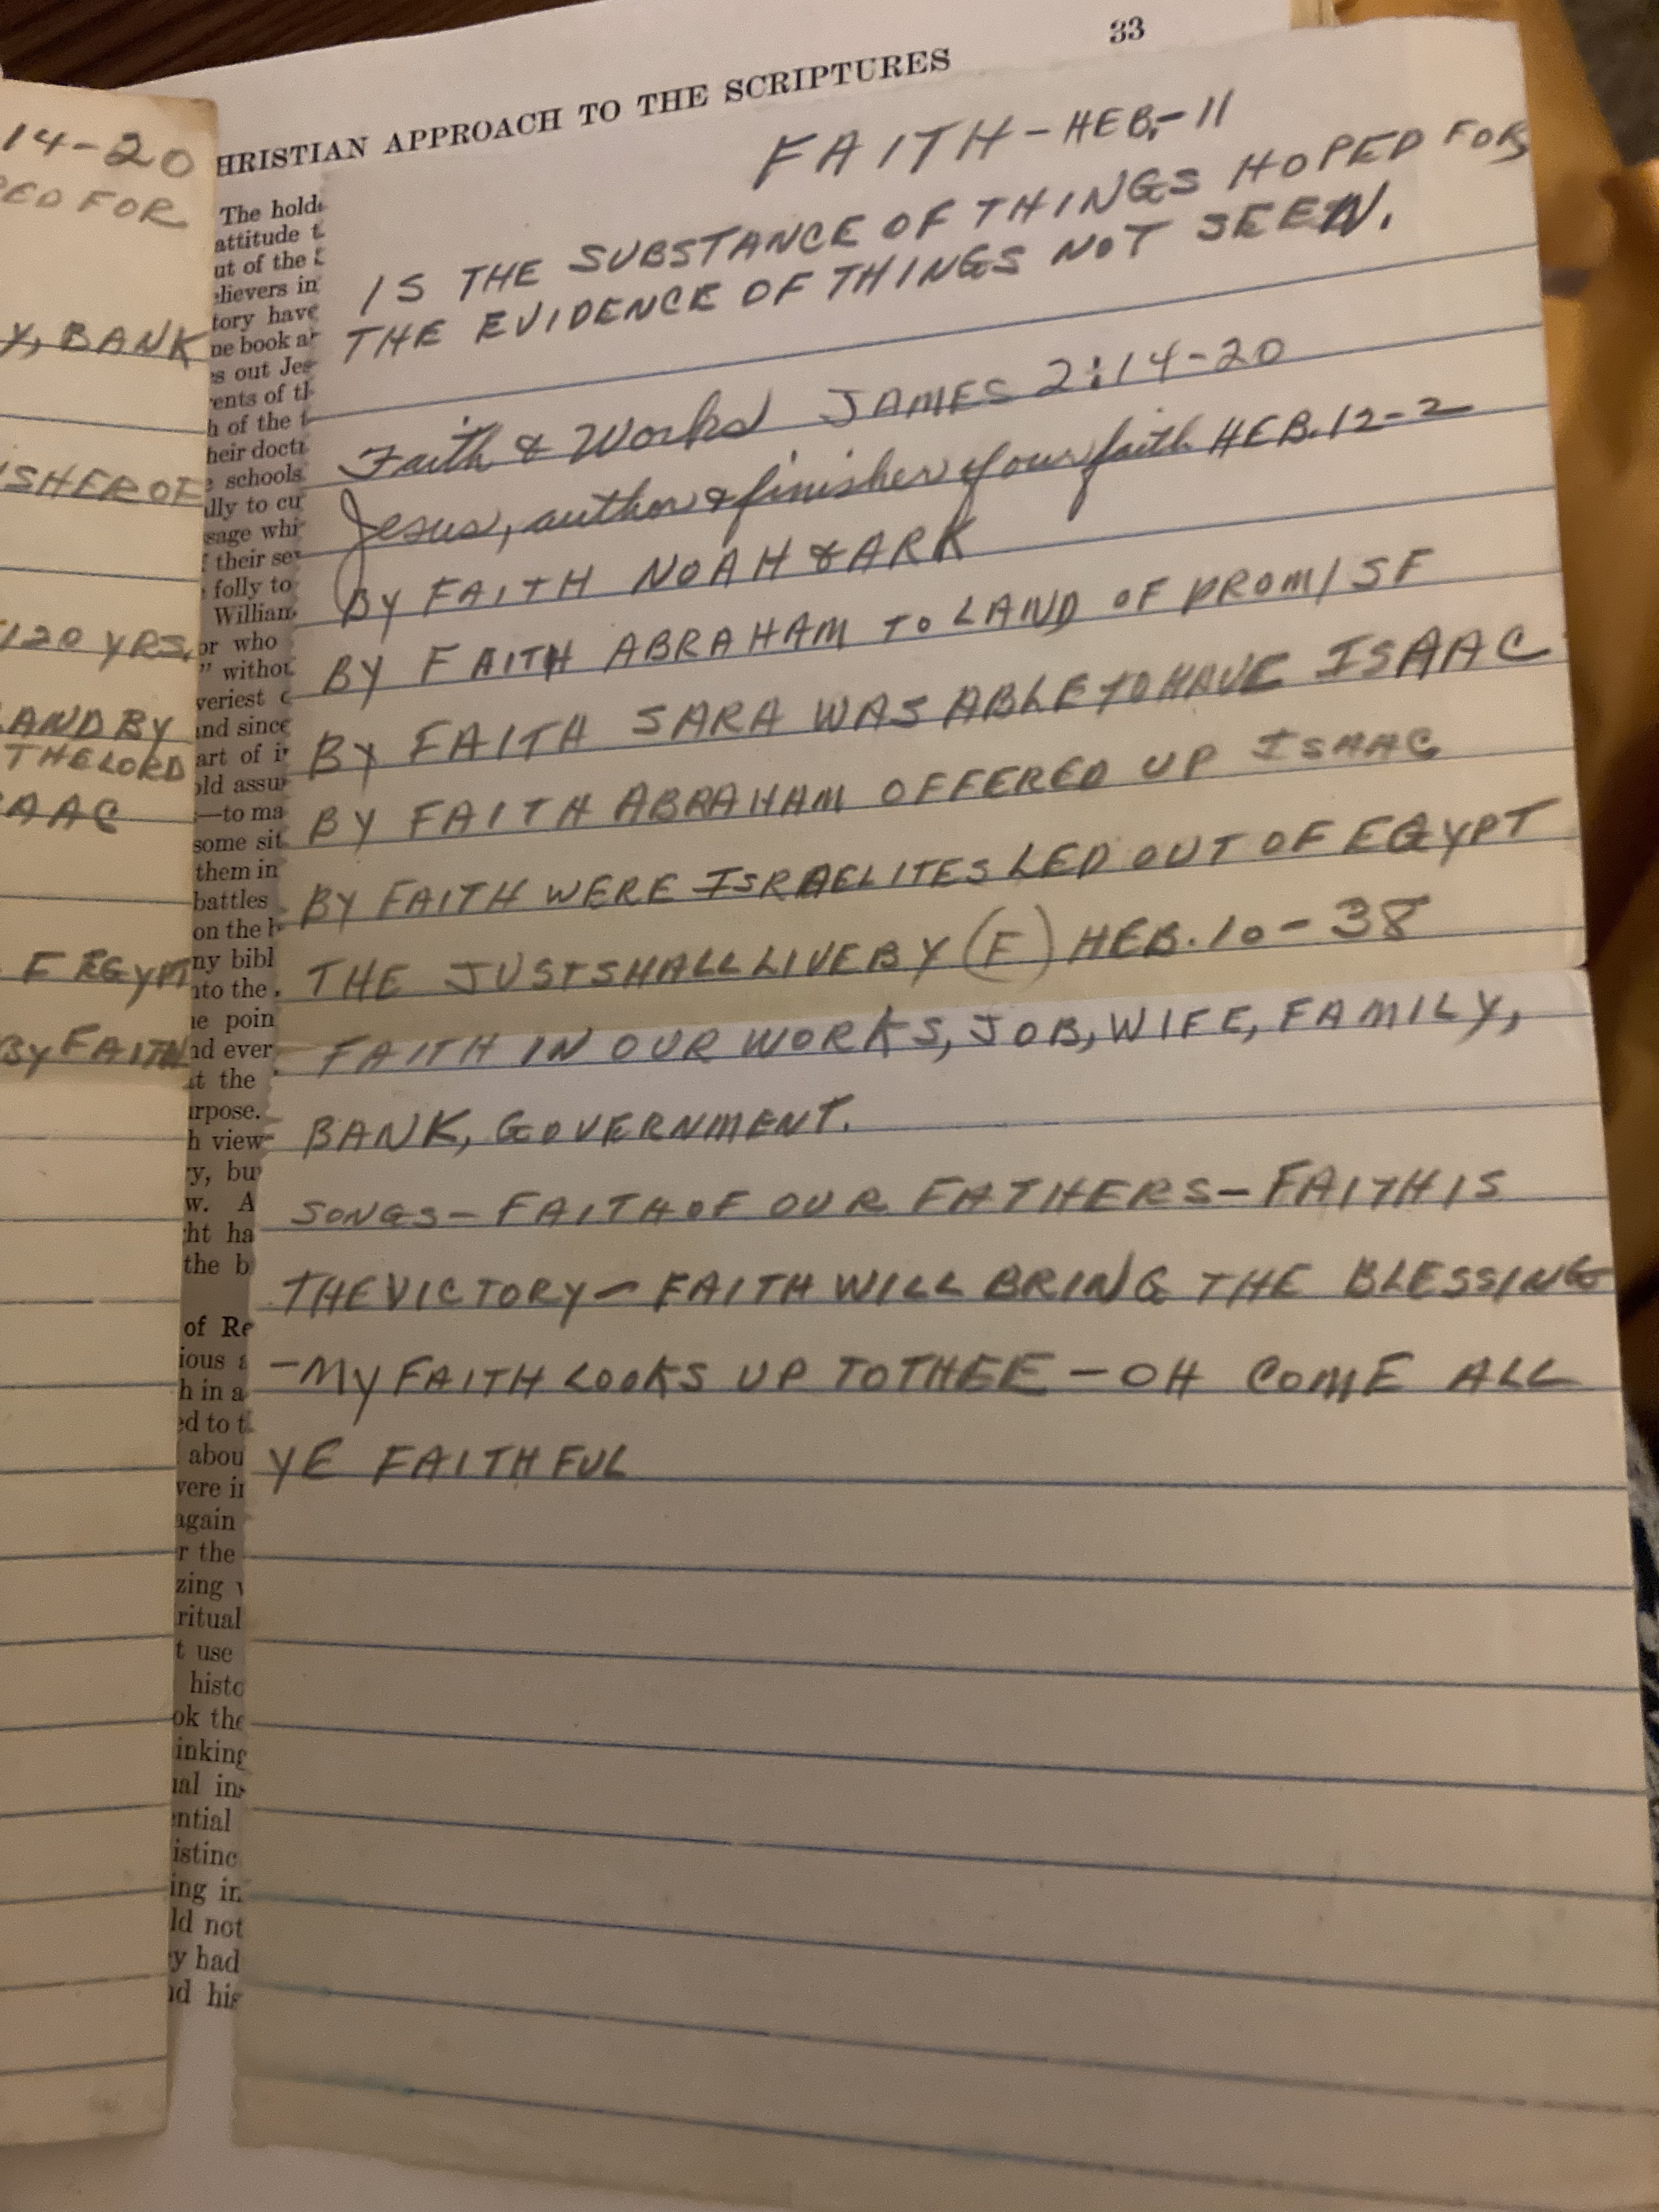 33
HRISTIAN APPROACH TO THE SCRIPTURES
14-20
ED FOR
Y, BANK
SHER OF
120 YRS.
LAND BY
THE LORD
AAC
F EGYPT
BY FAITH
The hold
attitude t
ut of the
elievers in
tory have
ne book a
s out Jes
ents of th
h of the
heir doct
schools
lly to cu
sage whi
their se
folly to
William
or who
" withou
veriest
and since
art of i
old assu
—to ma
some sit
them in
battles
on the b
ny bibl
nto the
e poin
nd ever
t the
urpose.
h view
y, bu
w. A
ht ha
the b
of Re
ious
h in a
ed to t
abou
were in
again
r the
zing
ritual
t use
histo
ok the
inking
ual in
ential
istinc
ing in
ld not
y had
nd his
FAITH - HEB.-11
IS THE SUBSTANCE OF THINGS HOPED FOR
THE EVIDENCE OF THINGS NOT SEEN.
Faith & Works JAMES 2:14-20
Jesus, author & finisher of our faith HEB. 12-2
BY FAITH NOAH & ARK
BY FAITH ABRAHAM TO LAND OF PROMISE
BY FAITH SARA WAS ABLE TO HAVE ISAAC
BY FAITH ABRAHAM OFFERED UP ISAAC
BY FAITH WERE ISRAELITES LED OUT OF EGYPT
THE JUST SHALL LIVE BY (F) HEB. 10-38
FAITH IN OUR WORKS, JOB, WIFE, FAMILY,
BANK, GOVERNMENT.
SONGS - FAITH OF OUR FATHERS - FAITH IS
THE VICTORY - FAITH WILL BRING THE BLESSING
- MY FAITH LOOKS UP TO THEE - OH COME ALL
YE FAITHFUL